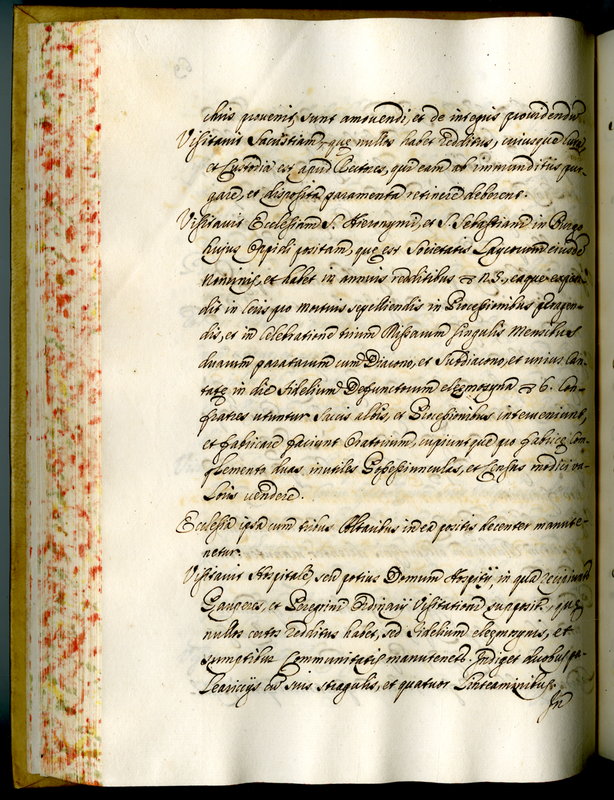 chris provenit, sunt amovendi, et de integris providendum.
Visitavit Sacristiam, que nullos habet redditus, cuiusque Cura,
et Custodia est apud Rectores, qui eam ab immunditiis pur-
gare, et disposita paramenta retinere deberent.
Visitavit Ecclesiam S. Hieronymi, et S. Sebastiani in Burgo
huius Oppidi positam, que est Societatis Laycorum eiusdem
Nominis, et habet in annuis redditibus 25., eaque expen-
dit in Ceris pro mortuis sepelliendis in Processionibus peragen-
dis, et in Celebratione trium Missarum singulis Mensibus
duarum paratarum cum Diacono, et Subdiacono, et unius Can-
tate in die Fidelium Defunctorum elemosyna 6. Con-
fratres utuntur Saccis albis, et Processionibus interveniunt,
et fabricare faciunt Oratorium, cupiuntque pro fabrice Com-
plemento duas inutiles Possessiunculas, et Census modici va-
loris vendere.
Ecclesia ipsa cum tribus Altaribus in ea positis decenter manute-
netur.
Visitavit Hospitale seu potius Domum Hospitij in qua recipiuntur
Pauperes, et Peregrini Ordinarij Visitationi supposit. que
nullos certos redditus habet, sed Fidelium elemosynis, et
sumptibus Communitatis manutenetur. Indiget duobus pa-
leariciis cum suis stragulis, et quatuor Linteaminibus.
In